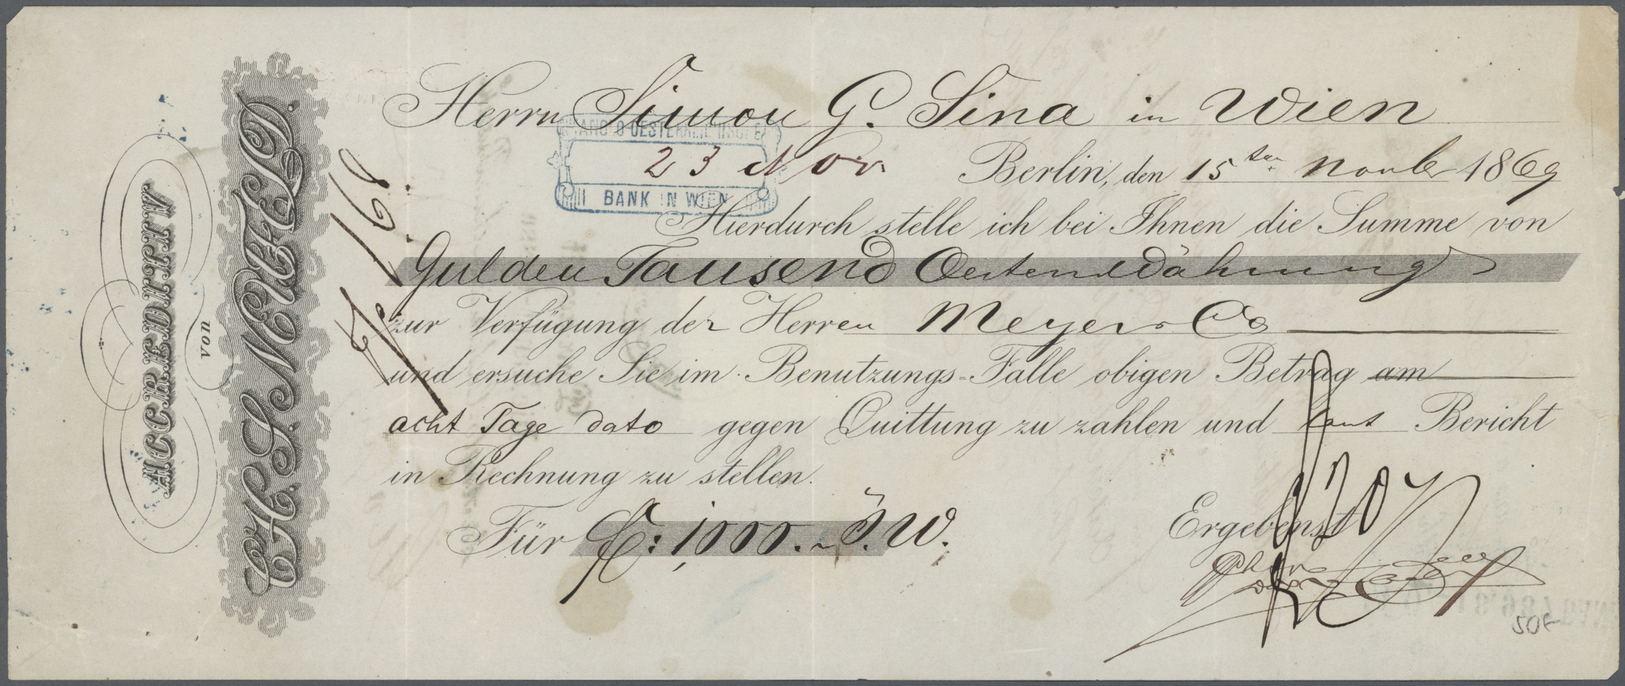 ACCREDITIV
von
CH. S. METH D.
Herrn Simon G. Sina in Wien
BANK IN WIEN
23 Nov
Berlin, den 15ten Novbr 1869
Hierdurch stelle ich bei Ihnen die Summe von
Gulden Tausend Oesterr Währung
zur Verfügung der Herren Meyer & Co
und ersuche Sie im Benutzungs-Falle obigen Betrag am
acht Tage dato gegen Quittung zu zahlen und laut Bericht
in Rechnung zu stellen.
Für f: 1,000.~ ö. W.
Ergebenst